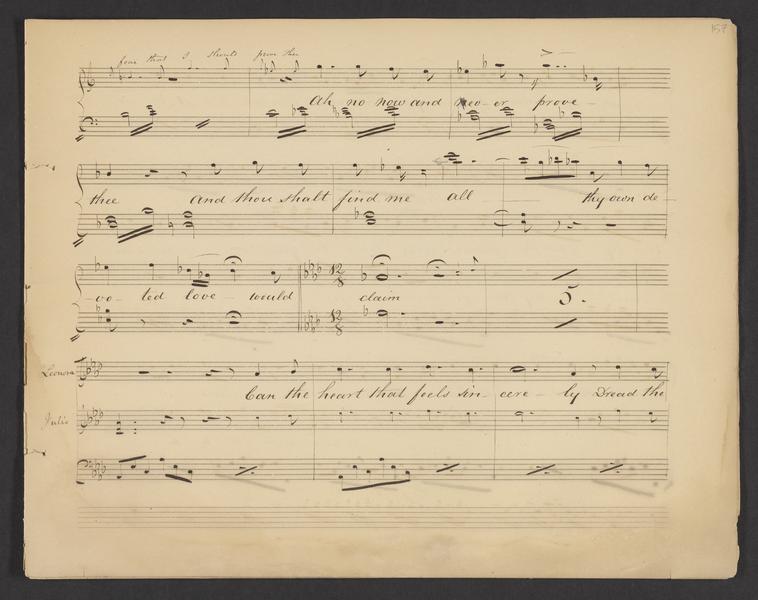 157
fear that I should prove thee
Ah no now and nev-er prove-
thee And thou shalt find me all thy own de-
-vo-ted love- would claim
12/8
5.
12/8
Leonora
Can the heart that feels sin-cere-ly Dread the
Julio